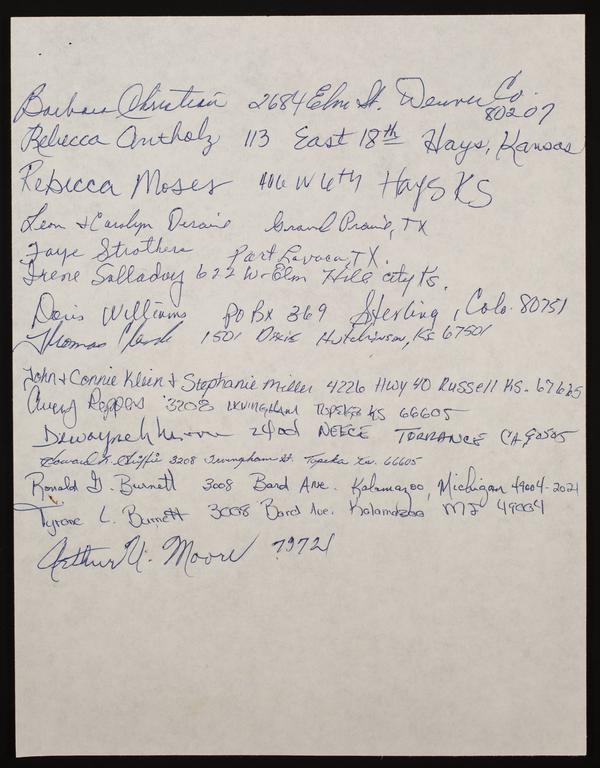 Barbara Christian 2684 Elm St. Denver Co.
80207
Rebecca Antholz 113 East 18th Hays, Kansas
Rebecca Moses 406 W 6th Hays KS
Leon & Carolyn Grand Prairie, TX
Faye Strothers Port Lavaca, TX.
Irene Salladay 622 W-Elm Hill city Ks.
Doris Williams PO Bx 369 Sterling, Colo. 80751
Thomas Clark 1501 Dixie Hutchinson, Ks 67501
John & Connie Klein & Stephanie Miller 4226 Hwy 40 Russell KS. 67665
Avery Peppers 3208 Topeka KS 66605
Dewayne 2400 NEECE TORRANCE CA 90505
Howard N. 3208 Irvingham St. Topeka Ks. 66605
Ronald G. Burnett 3008 Bard Ave. Kalamazoo, Michigan 49004-2021
Tyrone L. Burnett 3008 Bard Ave. Kalamazoo MI 49004
Arthur V. Moore 79721